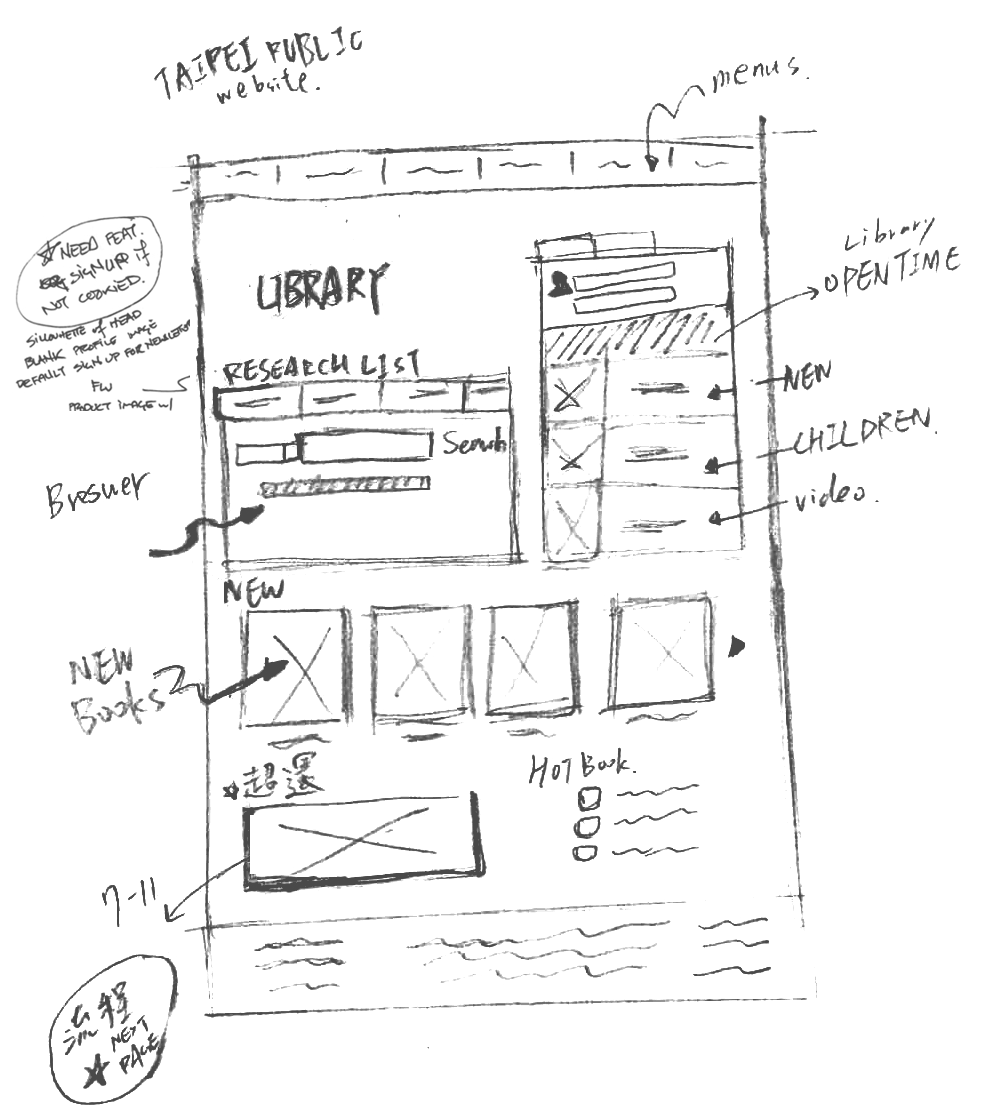 TAIPEI PUBLIC
website.
menus.
☆ NEED FEAT.
SIGNUP if
NOT COOKIED.
SILLOUHETTE of HEAD
BLANK PROFILE IMAGE
DEFAULT SIGN UP FOR NEWSLETTER
PRODUCT IMAGE w/
LIBRARY
Library
OPEN TIME
RESEARCH LIST
NEW
Search
CHILDREN.
Breswer
video.
NEW
NEW
Books
☆超還
HOT Book.
7-11
流程
★ NEXT
PAGE